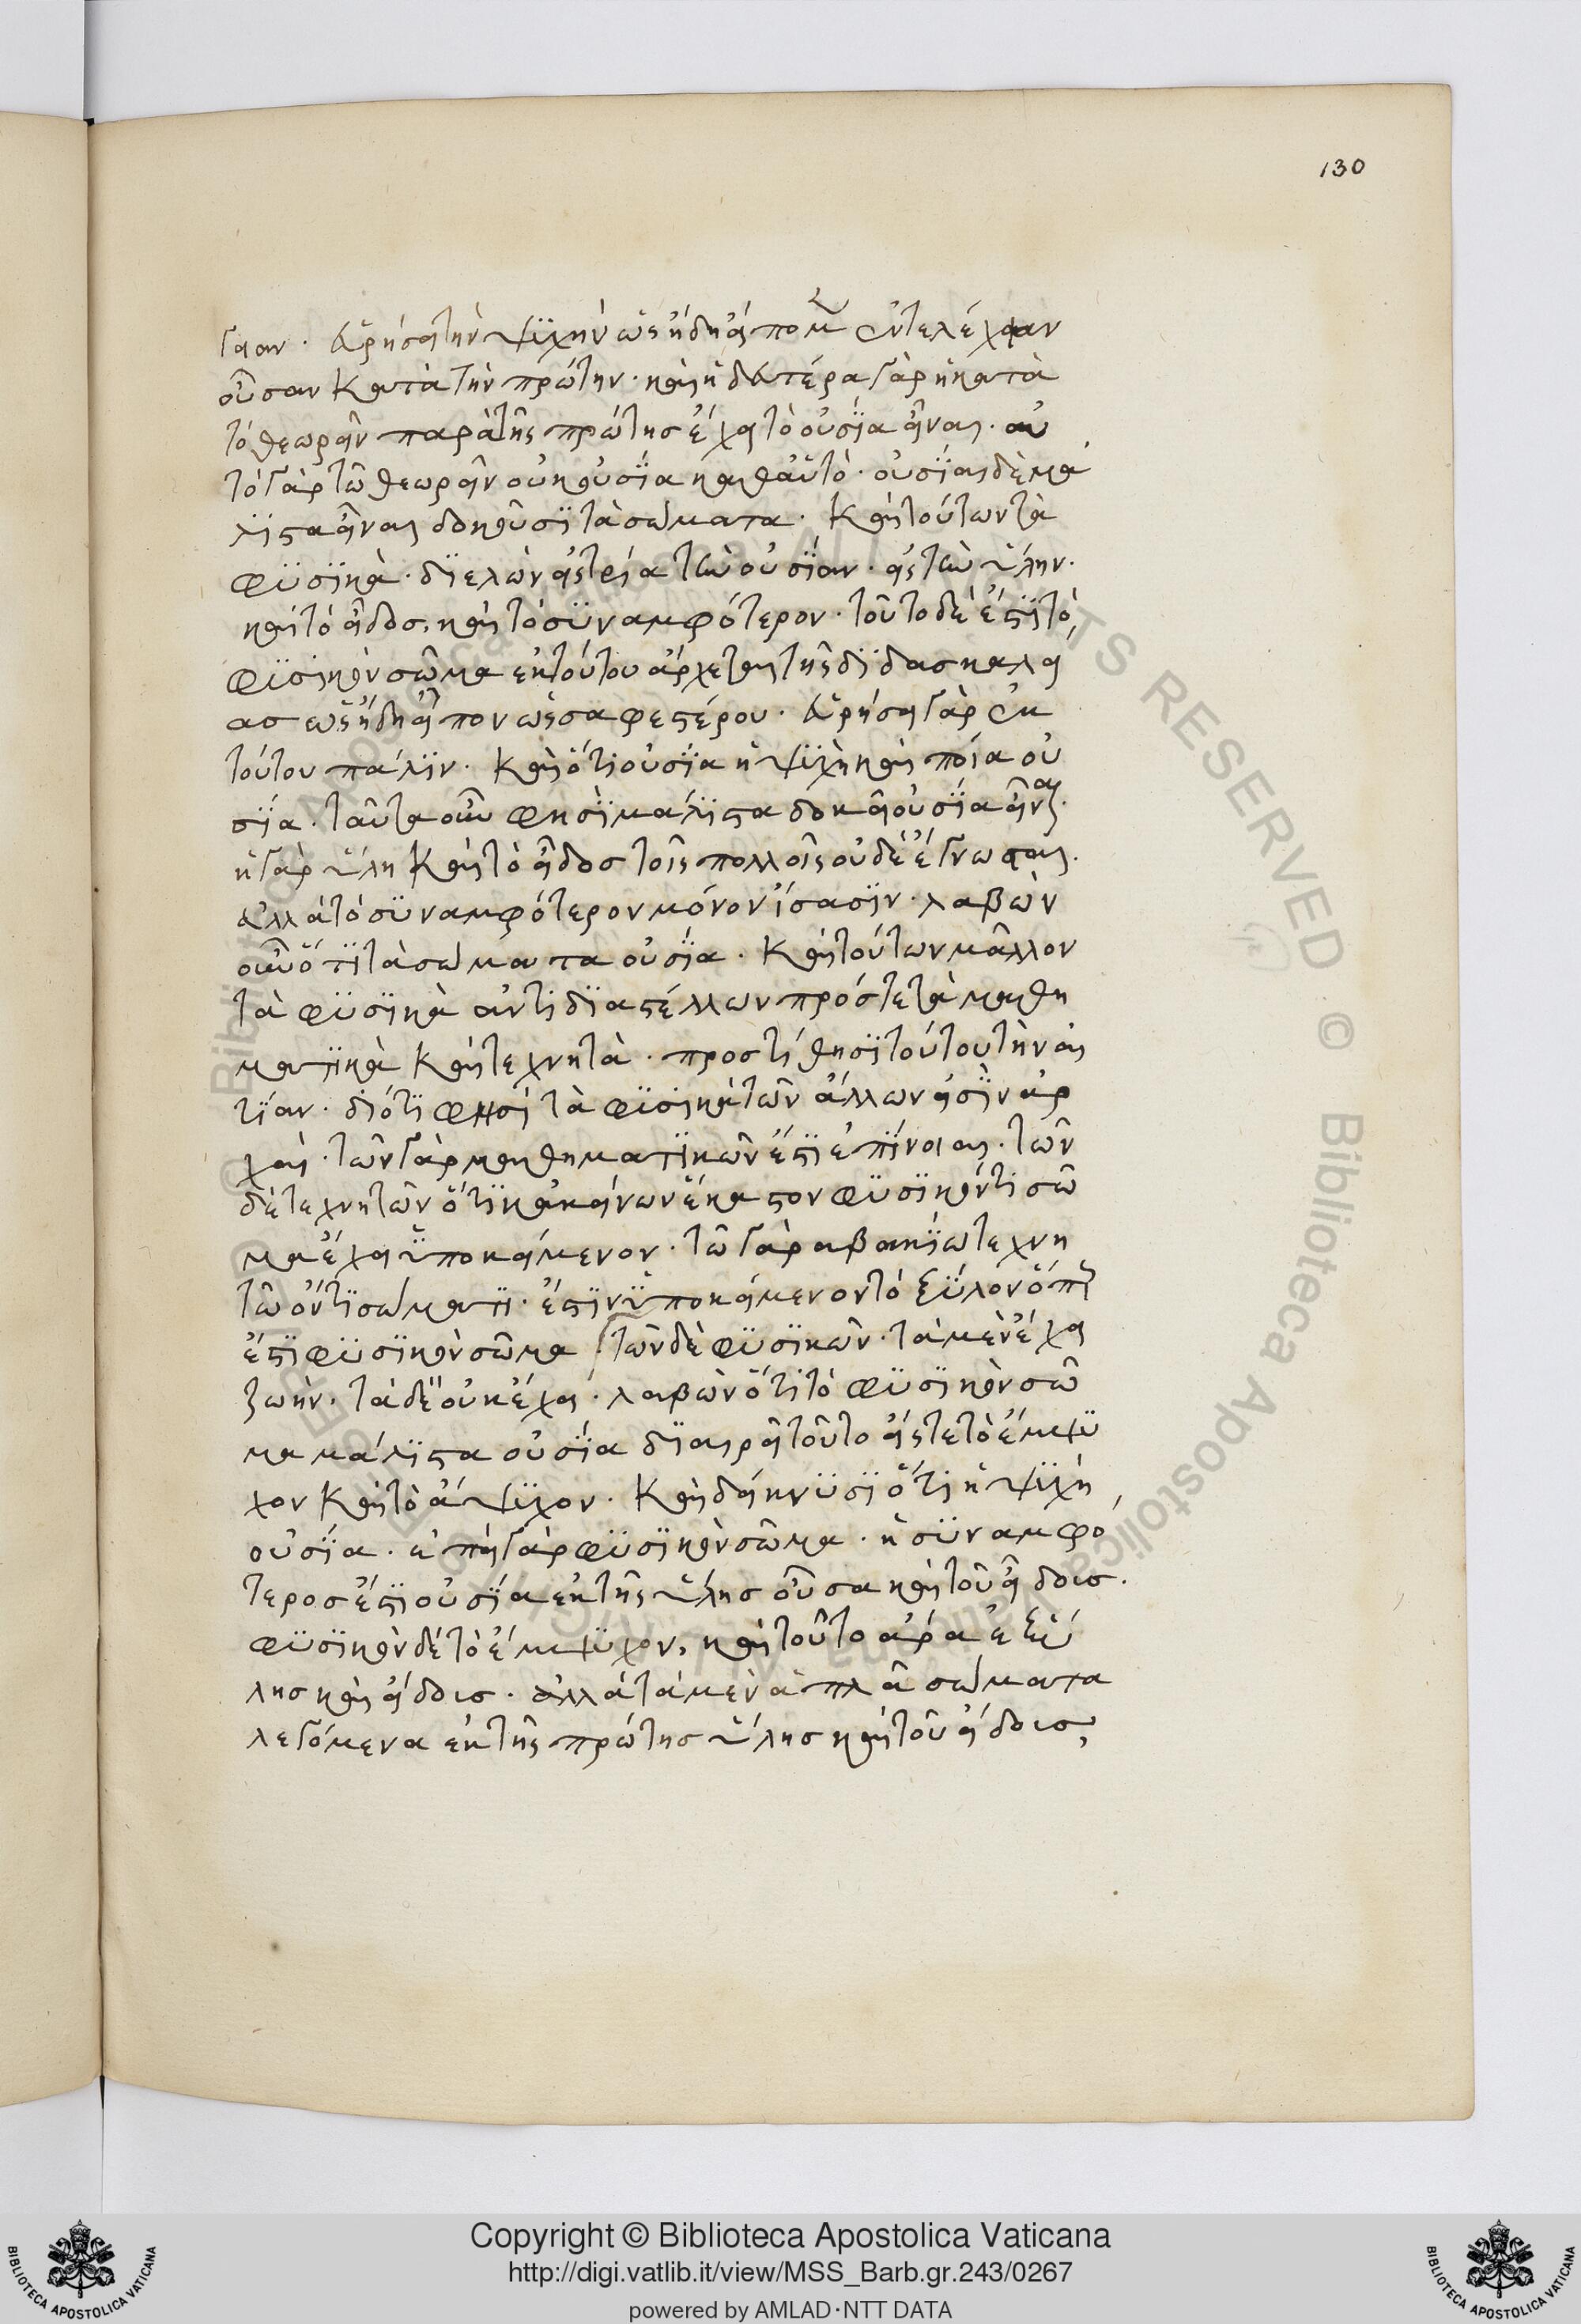 130
γειαν· εὑρήσει τὴν ψϋχὴν ὡς ἤδη εἴπομεν ἐντελέχειαν
οὖσαν κατὰ τὴν πρώτην· καὶ ἡ δευτέρα γὰρ ἡ κατὰ
τὸ θεωρεῖν παρὰ τῆς πρώτης ἔχει τὸ οὐσΐα εἶναι· αὐ
τὸ γὰρ τῶ θεωρεῖν οὐκ οὐσΐα καθ' αὑτό· οὐσΐαι δὲ μά
λϊστα εἶναι δοκοῦσϊ τὰ σώματα· καὶ τούτων τὰ
φϋσϊκὰ· δϊελὼν εἰς τρία τὴν οὐσΐαν· εἰς τὴν ὕλην·
καὶ τὸ εἶδος, καὶ τὸ σϋναμφότερον· τοῦτο δὲ ἐστϊ τὸ
φϋσϊκὸν σῶμα ἐκ τούτου ἄρχεται τῆς δϊδασκαλεί
ας ὡς ἤδη εἶπον ὡς σαφεστέρου· εὑρήσει γὰρ ἐκ
τούτου πάλϊν· καὶ ὅτι οὐσΐα ἡ ψϋχὴ καὶ ποία οὐ
σΐα· ταῦτα οὖν φησΐ μάλϊστα δοκεῖ οὐσΐα εἶναι·
ἡ γὰρ ὕλη καὶ τὸ εἶδος τοῖς πολλοῖς οὐδὲ ἔγνωσται·
ἀλλὰ τὸ σϋναμφότερον μόνον ἴσασϊν· λαβὼν
οὖν ὅτϊ τὰ σώματα οὐσΐα· καὶ τούτων μᾶλλον
τὰ φϋσϊκὰ ἀντιδϊαστέλλων πρός τε τὰ μαθη
ματϊκὰ καὶ τεχνητὰ· προστίθησϊ τούτου τὴν αἰ
τΐαν· διότϊ φησὶ τὰ φϋσϊκὰ τῶν ἄλλων εἰσΐν ἀρ
χαί· τῶν γὰρ μαθηματϊκῶν ἐστϊ ἐπΐνοιαι· τῶν
δὲ τεχνητῶν ὅτϊ κἀκείνων ἕκαστον φϋσϊκόν τι σῶ
μα ἔχει ὑποκείμενον· τῶ γὰρ ἀβακΐω τεχνη
τῶ ὄντϊ σώματϊ· ἐστΐν ὑποκείμενον τὸ ξϋλον ὅπερ
ἐστϊ φϋσϊκὸν σῶμα τῶν δὲ φϋσϊκῶν· τὰ μὲν ἔχει
ζωήν· τὰ δὲ οὐκ ἔχει· λαβὼν ὅτι τὸ φϋσϊκὸν σῶ
μα μάλϊστα οὐσΐα δϊαιρεῖ τοῦτο εἴς τε τὸ ἔμψϋ
χον καὶ τὸ ἄψϋχον· καὶ δείκνϋσϊ ὅτι ἡ ψϋχὴ
οὐσΐα· ἐπεὶ γὰρ φϋσϊκὸν σῶμα· ἡ σϋναμφό
τερος ἐστϊ οὐσΐα ἐκ τῆς ὕλης οὖσα καὶ τοῦ εἴδους·
φϋσϊκὸν δὲ τὸ ἔμψϋχον, καὶ τοῦτο ἄρα ἐξ ὕ
λης καὶ εἴδους· ἀλλὰ τὰ μὲν ἁπλᾶ σώματα
λεγόμενα ἐκ τῆς πρώτης ὕλης καὶ τοῦ εἴδους,
Copyright © Biblioteca Apostolica Vaticana
http://digi.vatlib.it/view/MSS_Barb.gr.243/0267
powered by AMLAD·NTT DATA